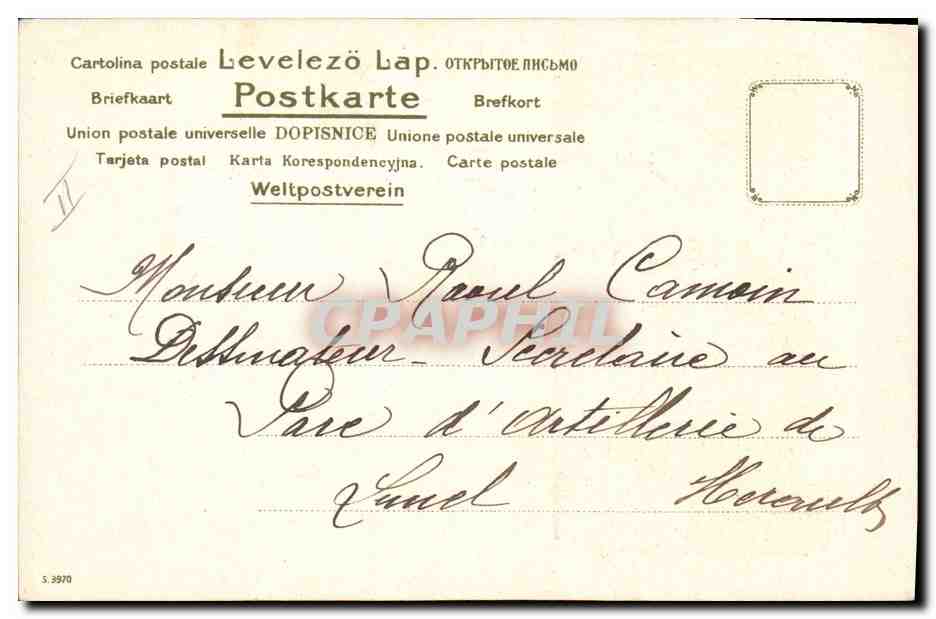 Cartolina postale Levelezö Lap. ОТКРЫТОЕ ПИСЬМО
Briefkaart Postkarte Brefkort
Union postale universelle DOPISNICE Unione postale universale
Tarjeta postal Karta Korespondencyjna. Carte postale
Weltpostverein
II
Monsieur Raoul Camoin
CPAPHIL
Dessinateur - Secretaire au
Parc d'Artillerie de
Lunel Herault
S. 3970